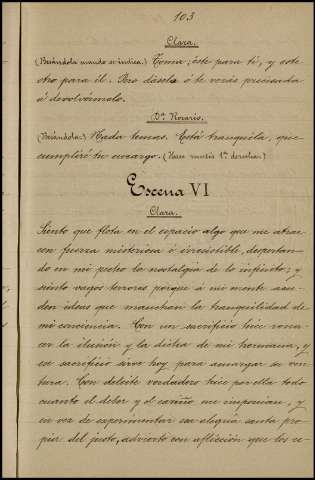 103
Clara.
(Besándola cuando se indica.) Toma; éste para ti, y este
otro para él. Pero dáselo ó te verás precisada
á devolvérmelo.
Dª Rosario.
(Besándola.) Nada temas. Está tranquila, que
cumpliré tu encargo. (Hace mutis 1ª derecha.)
Escena VI
Clara.
Siento que flota en el espacio algo que me atrae
con fuerza misteriosa é irresistible, despertan-
do en mi pecho la nostalgia de lo infinito; y
siento vagos terrores porque á mi mente acu-
den ideas que manchan la tranquilidad de
mi conciencia. Con un sacrificio hice rena-
cer la ilusión y la dicha de mi hermana, y
ese sacrificio sirve hoy para amargar su ven-
tura. Con deleite verdadero hice por ella todo
cuanto el deber y el cariño me imponían, y
en vez de experimentar esa alegría santa pro-
pia del justo, advierto con aflicción que los re-